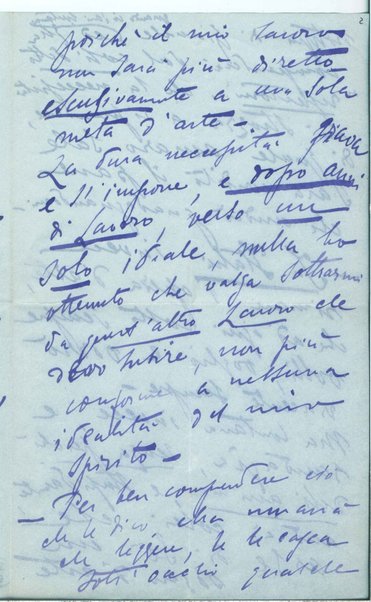 poiché il mio lavoro
non sarà più diretto
esclusivamente a una sola
meta d'arte –
La dura necessità grava
e s'impone, e dopo anni
di Lavoro, verso un
solo ideale, nulla ho
ottenuto che valga sottrarmi
da quest'altro Lavoro che
devo subire, non più
conforme a nessuna
idealità del mio
spirito –
– Per ben comprendere ciò
che le dico, che
che leggere, le caschi
sott'occhio qualche